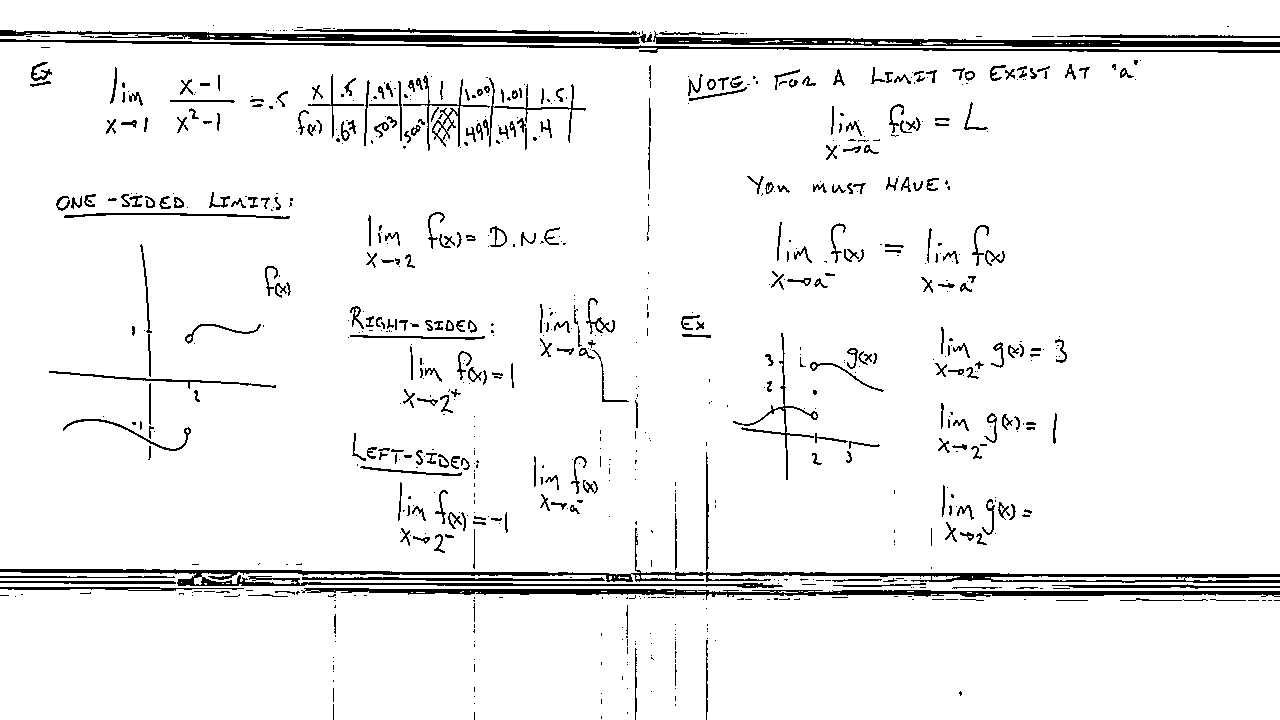 Ex
lim x→1 (x-1)/(x²-1) = .5
x | .5 | .99 | .999 | 1 | 1.001 | 1.01 | 1.5 |
f(x) | .67 | .503 | .5003 | | .499 | .497 | .4 |
ONE-SIDED LIMITS:
lim x→2 f(x) = D.N.E.
f(x)
1
2
-1
RIGHT-SIDED:
lim x→a⁺ f(x)
lim x→2⁺ f(x) = 1
LEFT-SIDED:
lim x→a⁻ f(x)
lim x→2⁻ f(x) = -1
NOTE: FOR A LIMIT TO EXIST AT "a"
lim x→a f(x) = L
YOU MUST HAVE:
lim x→a⁻ f(x) = lim x→a⁺ f(x)
Ex
g(x)
3
2
1
2 3
lim x→2⁺ g(x) = 3
lim x→2⁻ g(x) = 1
lim x→2 g(x) =